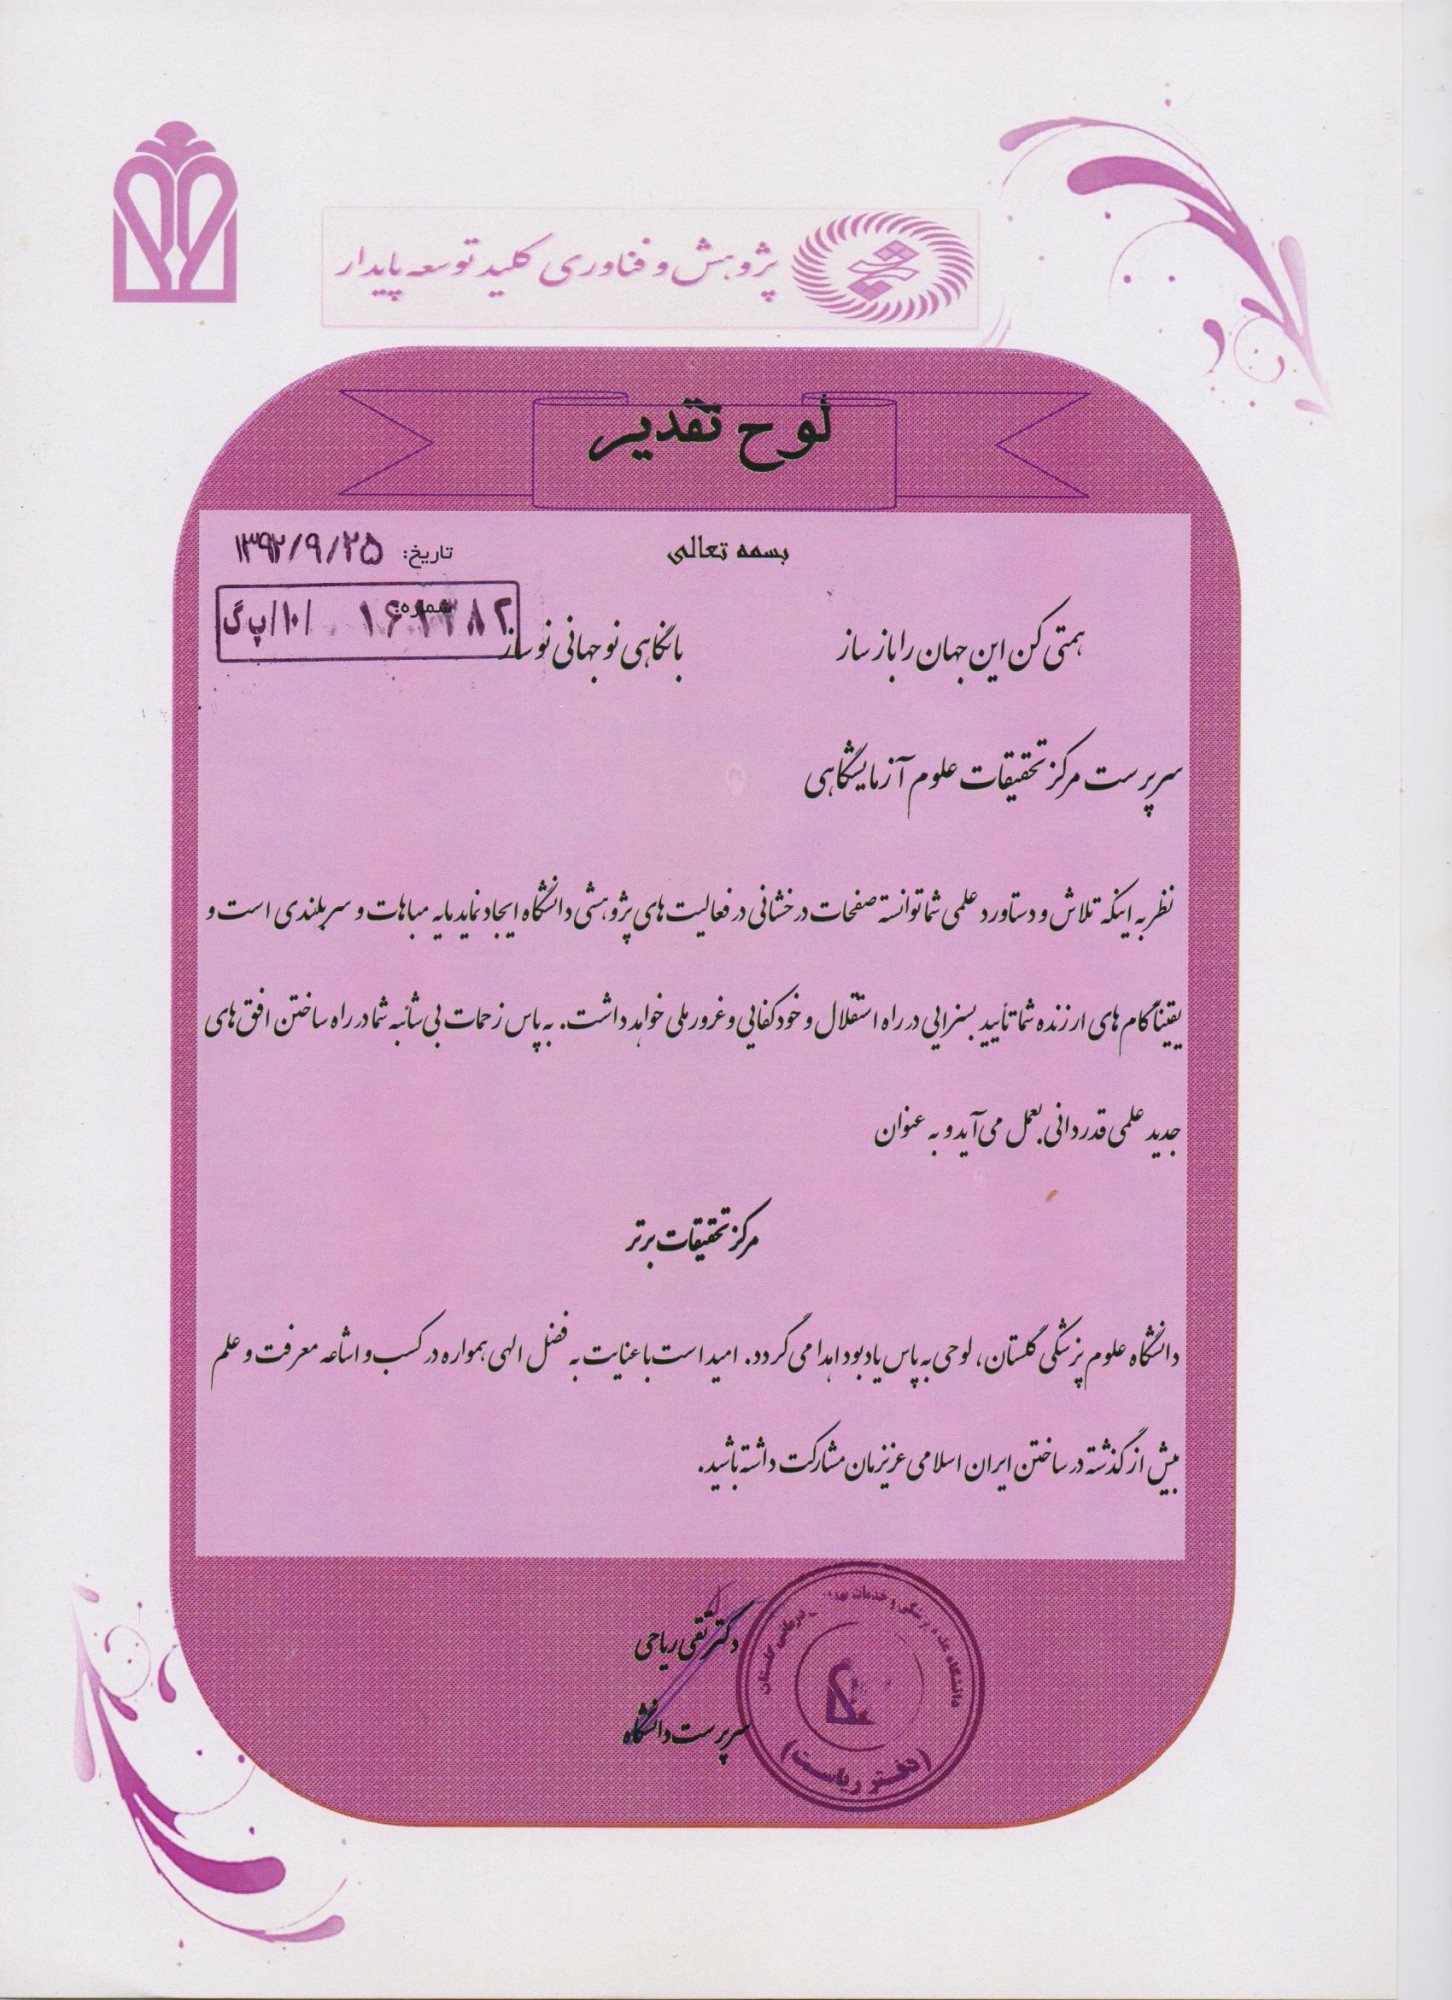 پژوهش و فناوری کلید توسعه پایدار
لوح تقدیر
بسمه تعالی
تاریخ: ۱۳۹۲/۹/۲۵
شماره:
/۱۰/پ گ
همتی کن این جهان را باز ساز با نگاهی نو جهانی نو ساز
سرپرست مرکز تحقیقات علوم آزمایشگاهی
نظر به اینکه تلاش و دستاورد علمی شما توانسته صفحات درخشانی در فعالیت های پژوهشی دانشگاه ایجاد نماید مایه مباهات و سربلندی است و
یقیناً گام های ارزنده شما تأیید بسزایی در راه استقلال و خودکفایی و غرور ملی خواهد داشت. به پاس زحمات بی شائبه شما در راه ساختن افق های
جدید علمی قدردانی بعمل می آید و به عنوان
مرکز تحقیقات برتر
دانشگاه علوم پزشکی گلستان، لوحی به پاس یادبود اهدا می گردد. امید است با عنایت به فضل الهی همواره در کسب و اشاعه معرفت و علم
بیش از گذشته در ساختن ایران اسلامی عزیزمان مشارکت داشته باشید.
دکتر تقی ریاحی
سرپرست دانشگاه
(دفتر ریاست)